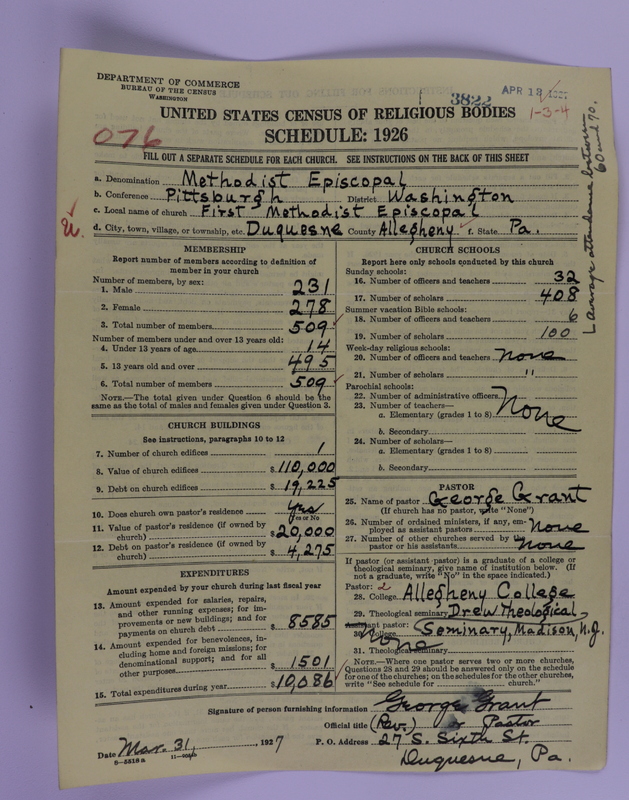 DEPARTMENT OF COMMERCE
BUREAU OF THE CENSUS
WASHINGTON
3822
APR 12 1927
1-3-4
UNITED STATES CENSUS OF RELIGIOUS BODIES
076
SCHEDULE: 1926
FILL OUT A SEPARATE SCHEDULE FOR EACH CHURCH. SEE INSTRUCTIONS ON THE BACK OF THIS SHEET
a. Denomination Methodist Episcopal
b. Conference Pittsburgh District Washington
c. Local name of church First Methodist Episcopal
d. City, town, village, or township, etc. Duquesne County Allegheny r. State Pa.
Average attendance between
60 and 70.
MEMBERSHIP
Report number of members according to definition of
member in your church
Number of members, by sex:
1. Male 231
2. Female 278
3. Total number of members 509
Number of members under and over 13 years old:
4. Under 13 years of age 14
5. 13 years old and over 495
6. Total number of members 509
NOTE.—The total given under Question 6 should be the
same as the total of males and females given under Question 3.
CHURCH BUILDINGS
See instructions, paragraphs 10 to 12
7. Number of church edifices 1
8. Value of church edifices $110,000
9. Debt on church edifices $19,225
10. Does church own pastor's residence Yes
Yes or No
11. Value of pastor's residence (if owned by
church) $20,000
12. Debt on pastor's residence (if owned by
church) $4,275
EXPENDITURES
Amount expended by your church during last fiscal year
13. Amount expended for salaries, repairs,
and other running expenses; for im-
provements or new buildings; and for
payments on church debt $8585
14. Amount expended for benevolences, in-
cluding home and foreign missions; for
denominational support; and for all
other purposes $1501
15. Total expenditures during year $10,086
CHURCH SCHOOLS
Report here only schools conducted by this church
Sunday schools:
16. Number of officers and teachers 32
17. Number of scholars 408
Summer vacation Bible schools:
18. Number of officers and teachers 6
19. Number of scholars 100
Week-day religious schools:
20. Number of officers and teachers None
21. Number of scholars "
Parochial schools:
22. Number of administrative officers None
23. Number of teachers—
a. Elementary (grades 1 to 8)
b. Secondary
24. Number of scholars—
a. Elementary (grades 1 to 8)
b. Secondary
PASTOR
25. Name of pastor George Grant
(If church has no pastor, write "None")
26. Number of ordained ministers, if any, em-
ployed as assistant pastors None
27. Number of other churches served by the
pastor or his assistants None
If pastor (or assistant pastor) is a graduate of a college or
theological seminary, give name of institution below. (If
not a graduate, write "No" in the space indicated.)
Pastor: 2
28. College Allegheny College
29. Theological seminary Drew Theological
Assistant pastor: Seminary, Madison, N.J.
30. College None
31. Theological seminary
NOTE.—Where one pastor serves two or more churches,
Questions 28 and 29 should be answered only on the schedule
for one of the churches; on the schedules for the other churches,
write "See schedule for church."
Signature of person furnishing information George Grant
Official title (Rev.) or Pastor
Date Mar. 31, 1927 P. O. Address 27 S. Sixth St.
Duquesne, Pa.